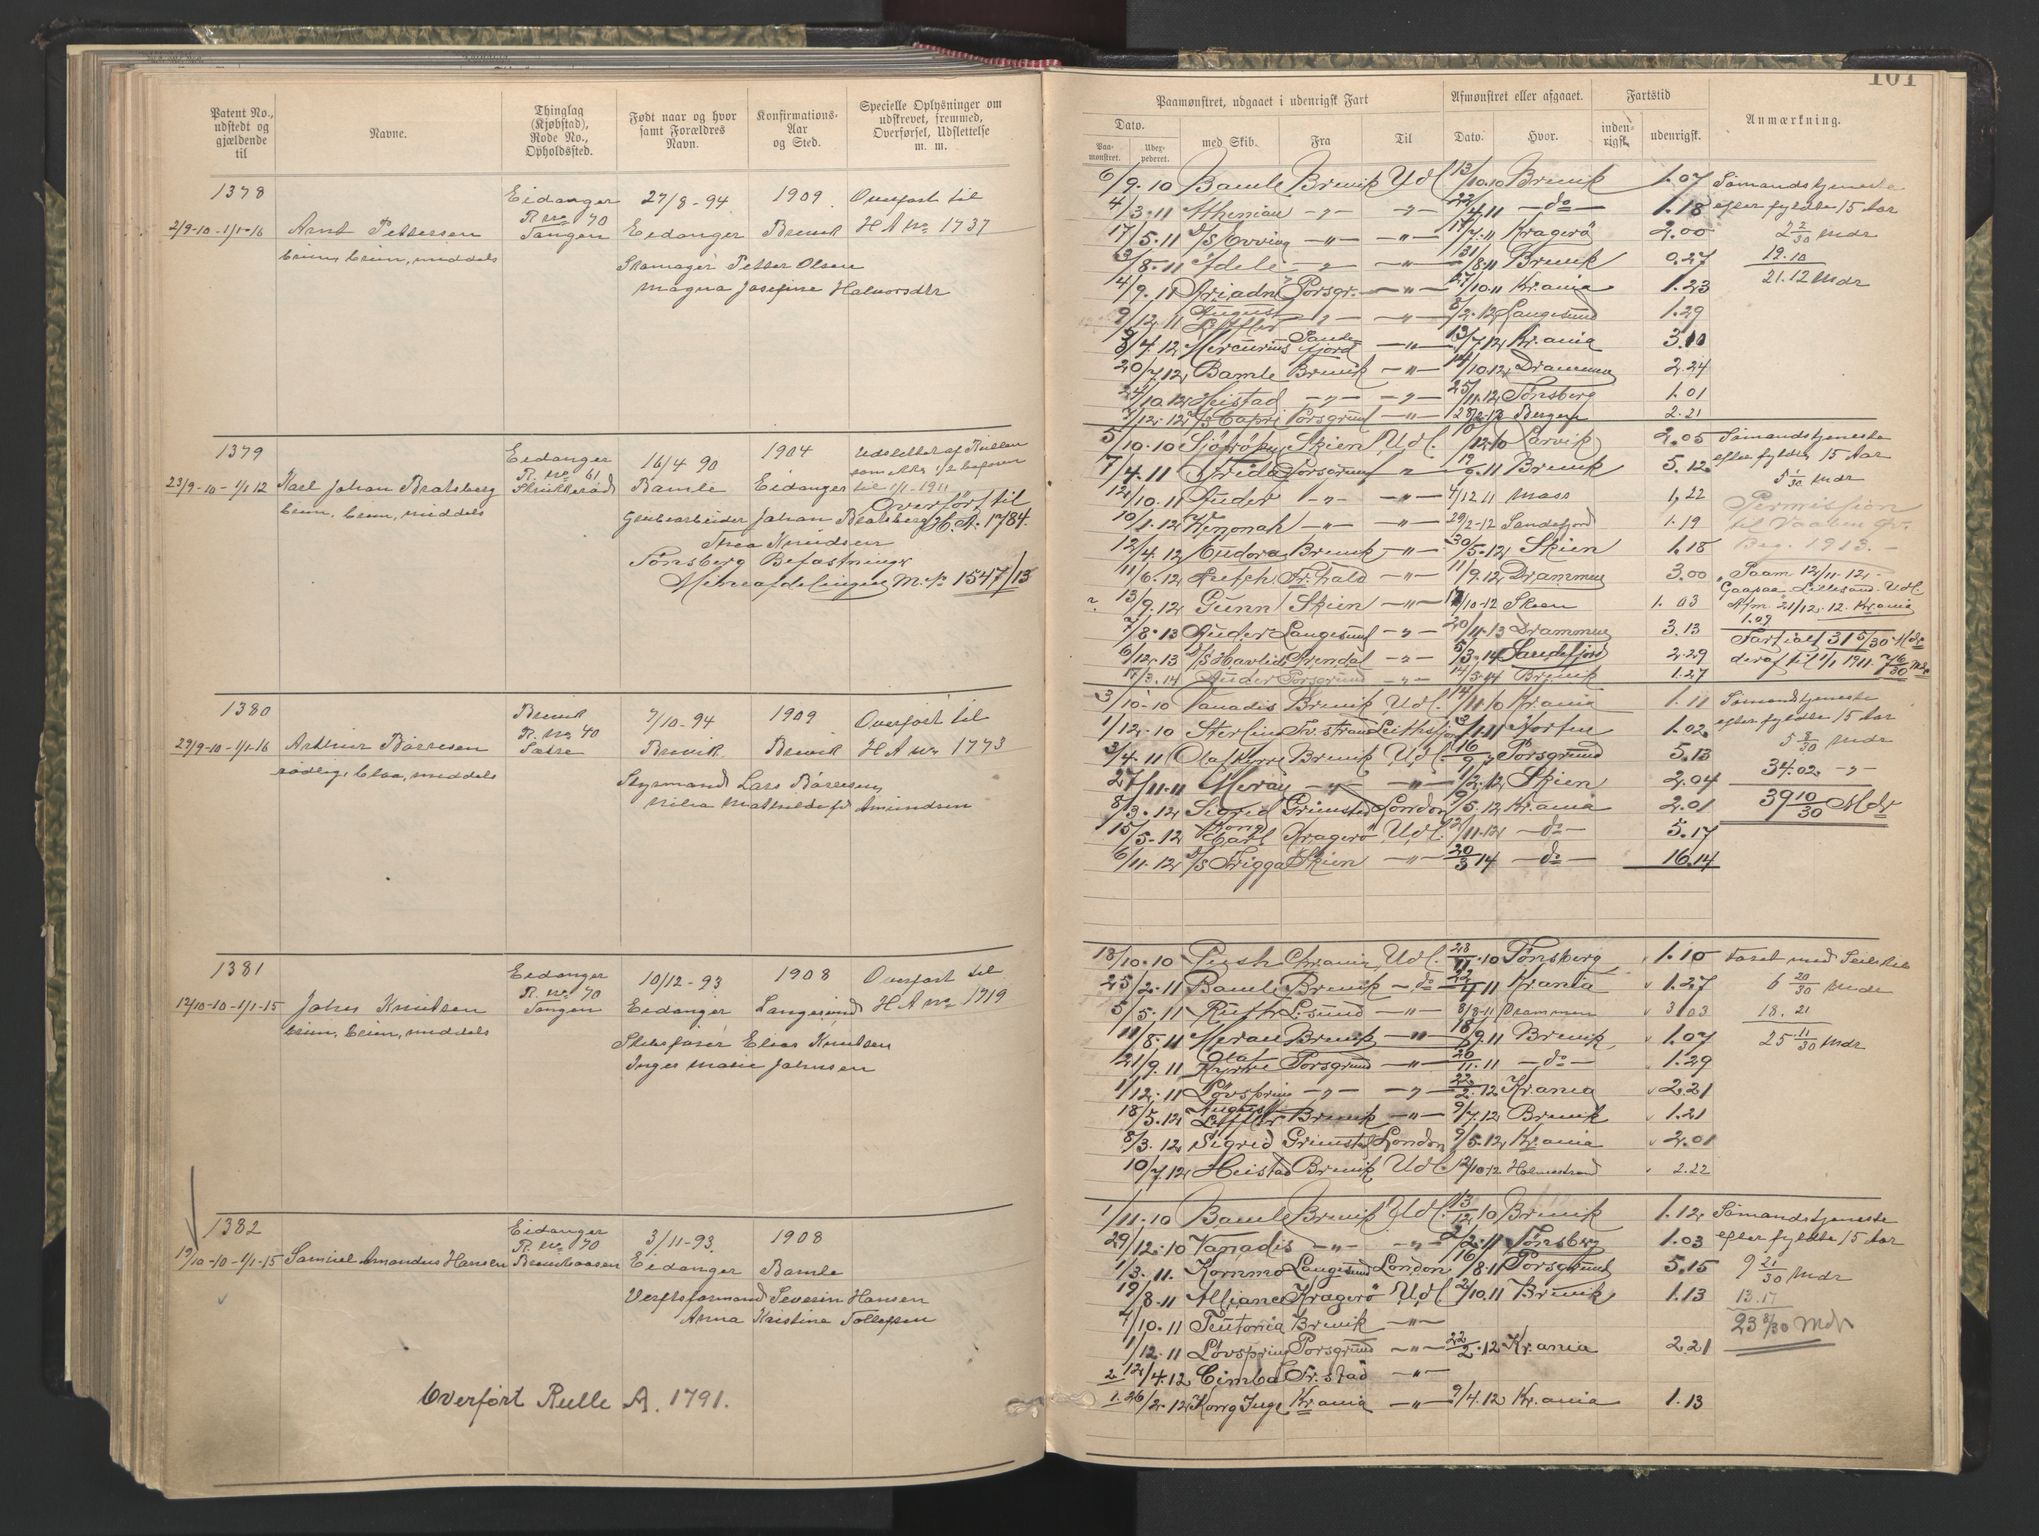 Patent No., udstedt og gjældende til
Navne.
Thinglag (Kjøbstad), Rode No., Opholdssted.
Født naar og hvor samt Forældres Navn.
Konfirmations-Aar og Sted.
Specielle Oplysninger om udskrevet, fremmed, Overførsel, Udslettelse m. m.
1378
2/9-10-1/1-16
Arnt Pettersen
Eidanger
R. No 70
Tangen
27/8-94
Eidanger
1909
Brevik
Overført til
H A No 1737
Skomager Petter Olsen
Magna Josefine Halvorsdtr
1379
23/9-10-1/1 12
Karl Johan Bratsberg
Eidanger
R. No 61
16/4 90
Bamle
1904
Eidanger
til 1/1-1911
Overført til
H. A. 1784.
Grubearbeider Johan Bratsberg
Thea Knudsen
Tønsberg Befæstning
Mineafdelingen M. No 1547/13
1380
29/9-10-1/1-16
Arthur Børresen
Brevik
R. No 40
7/10-94
Brevik
1909
Brevik
Overført til
H A No 1773
Styrmand Lars Børresen
1381
12/10-10-1/1-15
Johs Knutsen
Eidanger
R. No 70
Tangen
10/12-93
Eidanger
1908
Langesund
Overført til
H A No 1719
Elias Knutsen
Inger Marie Johnsen
1382
19/10-10-1/1-15
Samuel Amandus Hansen
Eidanger
R. No 70
3/11-93
Eidanger
1908
Bamle
Verftsformand Severin Hansen
Anna Kristine Tollefsen
Overført Rulle A. 1791.
101
Paamønstret, udgaaet i udenrigsk Fart
Afmønstret eller afgaaet.
Fartstid
Anmærkning.
Dato.
Paamønstret.
Udexpederet.
med Skib.
Fra
Til
Dato.
Hvor.
indenrigsk.
udenrigsk.
6/9-10 Bamle Brevik Udl. 13/10.10 Brevik 1.07 Sømandstjeneste
4/3.11 Athenian -"- -"- 22/4.11 -do- 1.18 efter fyldte 15 Aar
17/5-11 -"- -"- Kragerø 2.00 2 2/30 Mdr
/8-11 Adele -"- -"- 31/8.11 Brevik 0.27 19.10
4/9.11 Ariadne Porsgr. -"- 27/10.11 Kr.ania 1.23 21.12 Mdr
9/12.11 August Leffler -"- -"- 8/2.12 Langesund 1.29
/4.12 Mercurius Sandefjord -"- 13/7.12 Kr.ania 3.10
20/7.12 Bamle Brevik -"- 14/10.12 Drammen 2.24
/10.12 Heistad -"- -"- 25/11.12 Tønsberg 1.01
/12.12 Capri Porsgrund -"- Bergen 2.21
5/10-10 Skien Udl. Larvik 2.05 Sømandstjeneste
7/4.11 Frida Porsgrund 12/9.11 Brevik 5.12 efter fyldte 15 Aar
12/10.11 Ruder -"- -"- 4/12 11 Moss 1.22 5 1/30 Mdr
10/1.12 -"- -"- 29/2-12 Sandefjord 1.19 Permission
12/4.12 Eudora Brevik -"- 30/5.12 Skien 1.18 1913.
11/6.12 Fr.hald -"- 11/9.12 Drammen 3.00 Paam 12/11-12
13/9.12 Gunn Skien -"- 17/10-12 Skien 1.03 Afm. 21/12.12 Kr.ania
7/8.13 Ruder Langesund -"- 20/11.13 Drammen 3.13 1.09
6/12.13 Arendal -"- 5/3.14 Sandefjord 2.29 deraf til 1/1 1911
17/3.14 Ruder Porsgrund -"- 14/5-14 Brevik 1.27
3/10-10 Vanadis Brevik Udl. 14/11 10 Kr.ania 1.11 Sømandstjeneste
1/12.10 Horten 1.02 efter fyldte 15 Aar
3/4.11 Olaf Kyrre Brevik Udl. 16/9 Porsgrund 5.13 5 8/30 Mdr
27/11-11 Merau -"- -"- 11/2.12 Skien 2.04 34.02 -"-
8/3.12 Sigrid Grimstad London 9/5.12 Kr.ania 2.01 39 10/30 Mdr
15/5-12 Kong Carl Kragerø Udl. 2/11.12 -do- 5.17
6/11.12 S/S Frigga Skien -"- 20/3 14 -do- 16.14
18/10.10 Chr.ania Udl. 28/11.10 Tønsberg 1.10 Faret med Seilskib
25/2-11 Bamle Brevik -do- 22/4 11 Kr.ania 1.27 6 20/30 Mdr
5/5.11 Ruth L.sund -"- 8/8-11 Drammen 3 03 18.21
11/8.11 Merau Brevik -"- 18/9.11 Brevik 1.07 25 11/30 Mdr
21/9.11 Olaf Kyrre Porsgrund -"- 20/11.11 -do- 1.29
1/12.11 Løvspring -"- -"- 22/2.12 Kr.ania 2.21
18/5.12 August Leffler Brevik -"- 9/7.12 Brevik 1.21
8/3.12 Sigrid Grimstad London 9/5.12 Kr.ania 2.01
10/7.12 Heistad Brevik Udl. 2/10 12 Holmestrand 2.22
1/11-10 Bamle Brevik Udl. 13/12.10 Brevik 1.12 Sømandstjeneste
29/12.10 Vanadis -"- -"- 2/2-11 Tønsberg 1.03 efter fyldte 15 Aar
1/3.11. Kornmo Langesund London 16/8.11 Porsgrund 5.15 9 21/30 Mdr
19/8.11 Alliance Kragerø Udl. 2/10.11 Brevik 1.13 13.17
/10.11 Teutonia Brevik -"- 23 8/30 Mdr
1/12.11 Løvspring Porsgrund -"- 22/2.12 Kr.ania 2.21
2 12/4.12 Fr.stad -"-
1. 26/2.12 Kong Inge Kr.ania -"- 9/4.12 Kr.ania 1.13